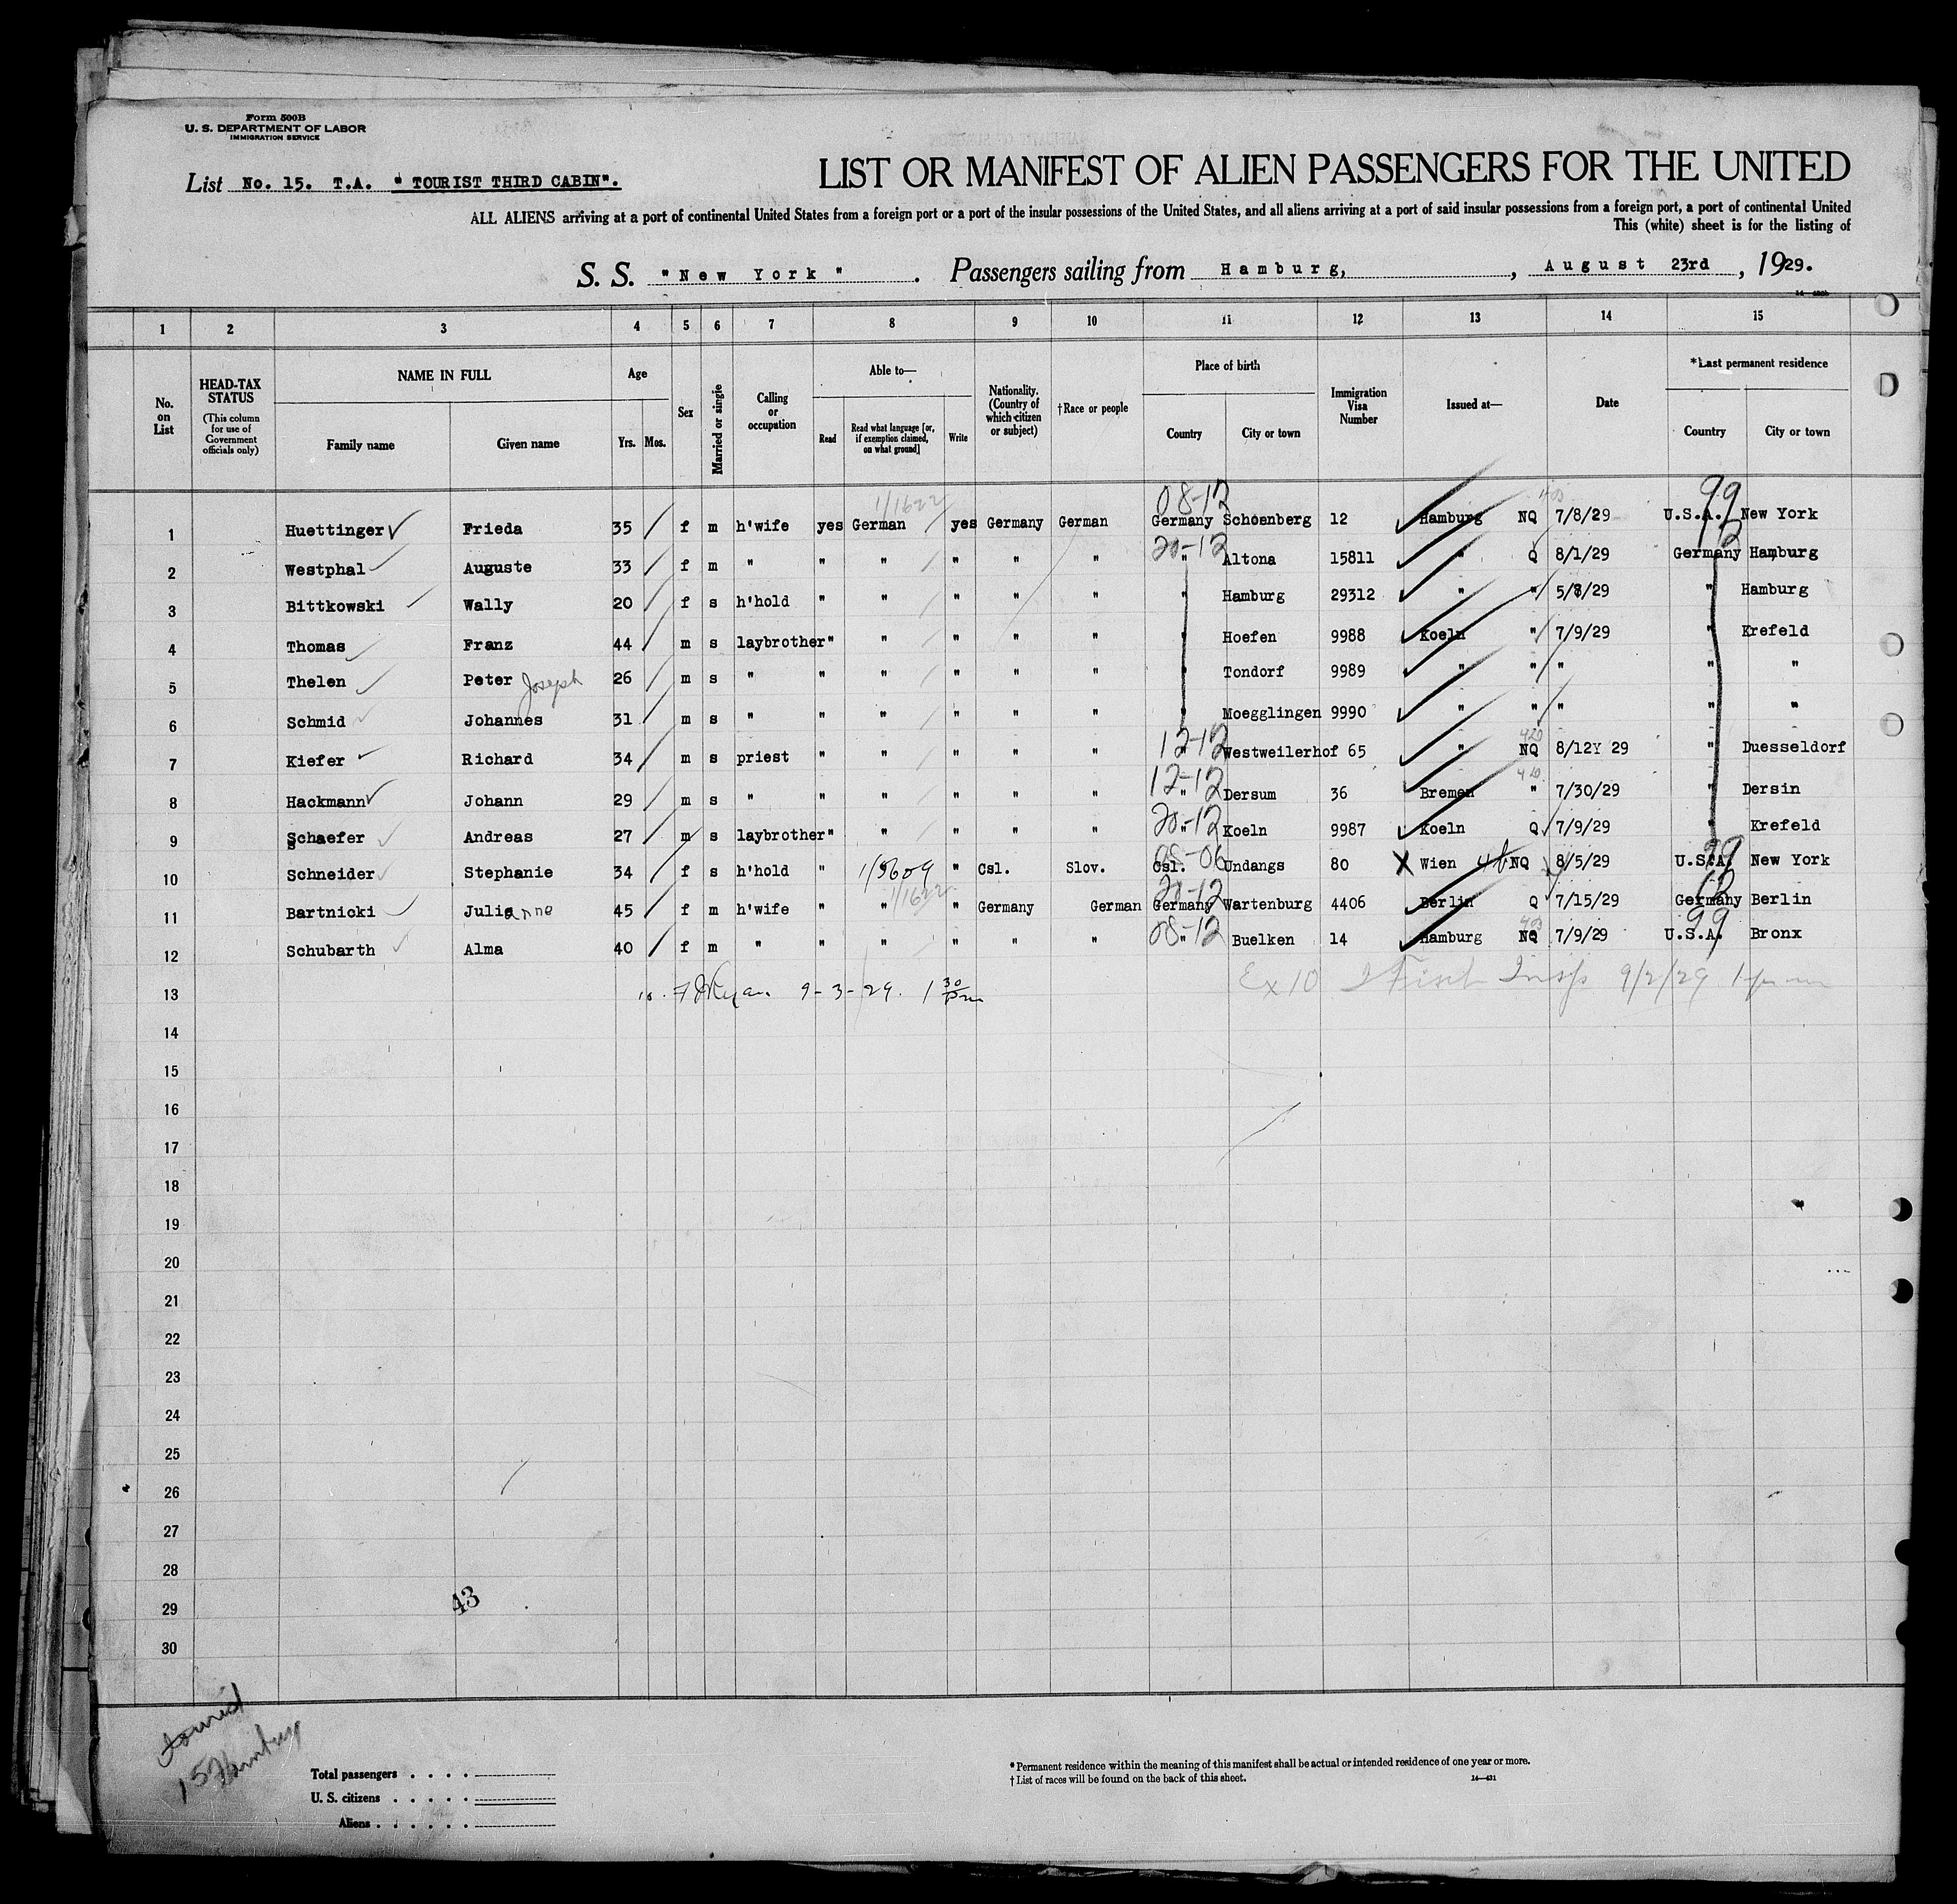 Form 500B
U. S. DEPARTMENT OF LABOR
IMMIGRATION SERVICE
List No. 15. T.A. " TOURIST THIRD CABIN".
LIST OR MANIFEST OF ALIEN PASSENGERS FOR THE UNITED
ALL ALIENS arriving at a port of continental United States from a foreign port or a port of the insular possessions of the United States, and all aliens arriving at a port of said insular possessions from a foreign port, a port of continental United
This (white) sheet is for the listing of
S. S. "New York". Passengers sailing from Hamburg, , August 23rd , 1929.
1 2 3 4 5 6 7 8 9 10 11 12 13 14 15
No. on List
HEAD-TAX STATUS (This column for use of Government officials only)
NAME IN FULL Family name Given name
Age Yrs. Mos.
Sex
Married or single
Calling or occupation
Able to— Read Read what language [or, if exemption claimed, on what ground] Write
Nationality. (Country of which citizen or subject)
†Race or people
Place of birth Country City or town
Immigration Visa Number
Issued at—
Date
*Last permanent residence Country City or town
08-12 99
1/1622
1 Huettinger Frieda 35 f m h'wife yes German yes Germany German Germany Schoenberg 12 Hamburg NQ 7/8/29 U.S.A. New York
20-12 12
2 Westphal Auguste 33 f m " " " " " " " Altona 15811 " Q 8/1/29 Germany Hamburg
3 Bittkowski Wally 20 f s h'hold " " " " " " Hamburg 29312 " " 5/8/29 " Hamburg
4 Thomas Franz 44 m s laybrother " " " " " " Hoefen 9988 Koeln " 7/9/29 " Krefeld
5 Thelen Peter Joseph 26 m s " " " " " " " Tondorf 9989 " " " " "
6 Schmid Johannes 31 m s " " " " " " " Moegglingen 9990 " " " " "
12-12
7 Kiefer Richard 34 m s priest " " " " " " Westweilerhof 65 " NQ 8/12Y 29 " Duesseldorf
12-12
8 Hackmann Johann 29 m s " " " " " " " Dersum 36 Bremen " 7/30/29 " Dersin
20-12
9 Schaefer Andreas 27 m s laybrother " " " " " " Koeln 9987 Koeln Q 7/9/29 " Krefeld
08-06 99
10 Schneider Stephanie 34 f s h'hold " " Csl. Slov. Csl. Undangs 80 Wien NQ 8/5/29 U.S.A. New York
1/1622 20-12 12
11 Bartnicki Julianne 45 f m h'wife " " " Germany German Germany Wartenburg 4406 Berlin Q 7/15/29 Germany Berlin
08-12 99
12 Schubarth Alma 40 f m " " " " " " " Buelken 14 Hamburg NQ 7/9/29 U.S.A. Bronx
13 9-3-29. 1 30 pm Ex 10 Insp 9/2/29
14
15
16
17
18
19
20
21
22
23
24
25
26
27
28
29
30
43
tourist
15 Hamburg
Total passengers . . . .
U. S. citizens . . . . .
Aliens . . . . . .
*Permanent residence within the meaning of this manifest shall be actual or intended residence of one year or more.
†List of races will be found on the back of this sheet. 14—431